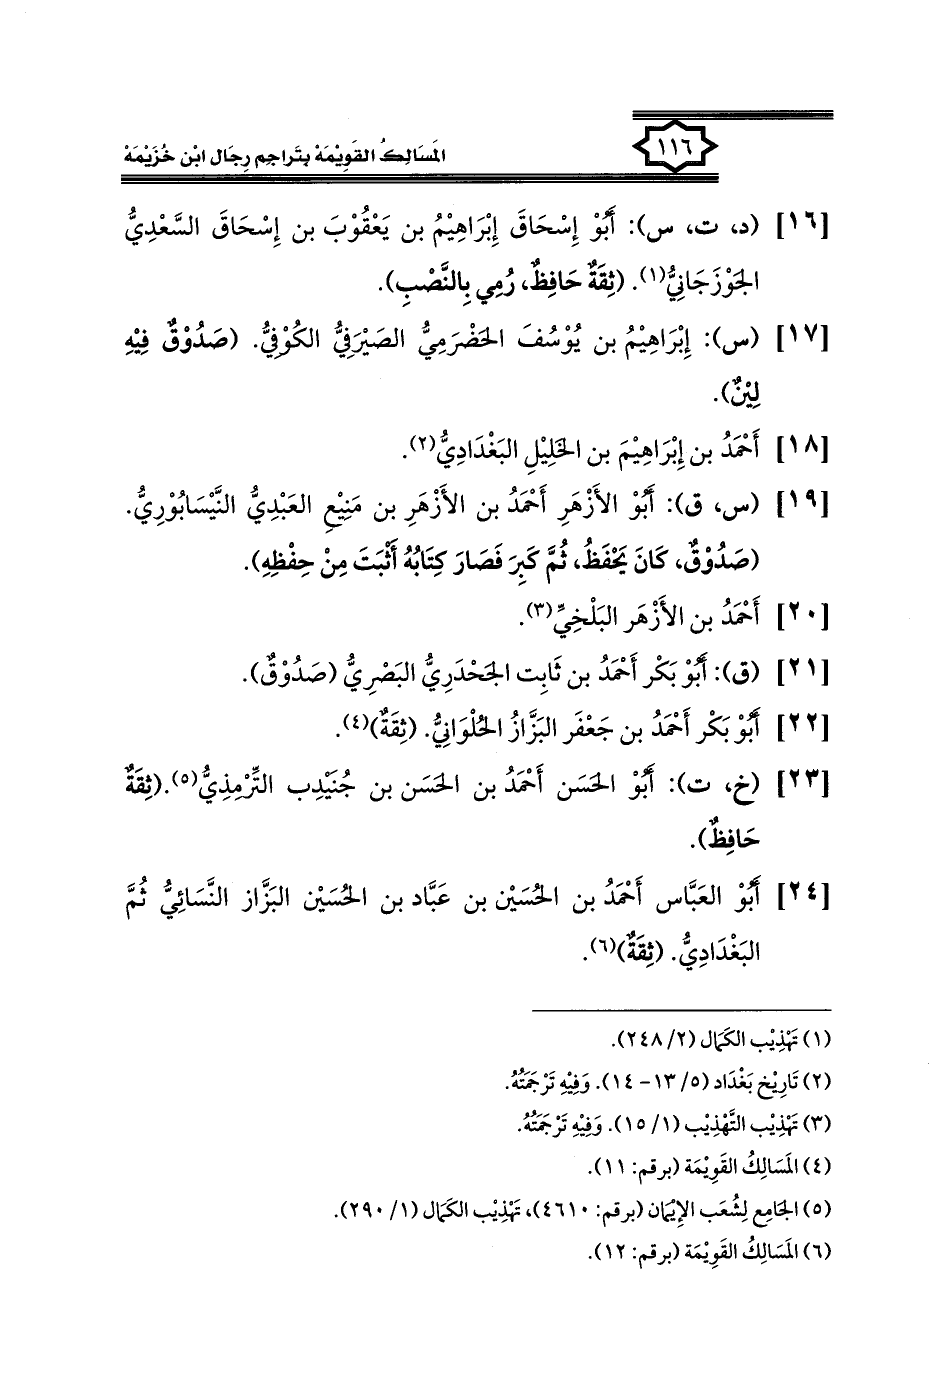 المَسَالِكُ القَوِيْمَة بِتَرَاجِم رِجَال ابْن خُزَيْمَة
١١٦
[١٦] (د، ت، س): أَبُوْ إِسْحَاقَ إِبْرَاهِيْمُ بن يَعْقُوْبَ بن إِسْحَاقَ السَّعْدِيُّ
الجَوْزَجَانِيُّ(١). (ثِقَةٌ حَافِظٌ، رُمِي بِالنَّصْبِ).
[١٧] (س): إِبْرَاهِيْمُ بن يُوْسُفَ الحَضْرَمِيُّ الصَيْرَفِيُّ الكُوْفِيُّ. (صَدُوْقٌ فِيْهِ
لِيْنٌ).
[١٨] أَحْمَدُ بن إِبْرَاهِيْمَ بن الخَلِيْلِ البَغْدَادِيُّ(٢).
[١٩] (س، ق): أَبُوْ الأَزْهَرِ أَحْمَدُ بن الأَزْهَرِ بن مَنِيْعِ العَبْدِيُّ النَّيْسَابُوْرِيُّ.
(صَدُوْقٌ، كَانَ يَحْفَظُ، ثُمَّ كَبِرَ فَصَارَ كِتَابُهُ أَثْبَتَ مِنْ حِفْظِهِ).
[٢٠] أَحْمَدُ بن الأَزْهَر البَلْخِيِّ(٣).
[٢١] (ق): أَبُوْ بَكْر أَحْمَدُ بن ثَابِت الجَحْدَرِيُّ البَصْرِيُّ (صَدُوْقٌ).
[٢٢] أَبُوْ بَكْر أَحْمَدُ بن جَعْفَر البَزَّازُ الحُلْوَانِيُّ. (ثِقَةٌ)(٤).
[٢٣] (خ، ت): أَبُوْ الحَسَن أَحْمَدُ بن الحَسَن بن جُنَيْدِب التِّرْمِذِيُّ(٥).(ثِقَةٌ
حَافِظٌ).
[٢٤] أَبُوْ العَبَّاس أَحْمَدُ بن الحُسَيْن بن عَبَّاد بن الحُسَيْن البَزَّاز النَّسَائِيُّ ثُمَّ
البَغْدَادِيُّ. (ثِقَةٌ)(٦).
(١) تَهْذِيْب الكَمَال (٢/ ٢٤٨).
(٢) تَارِيْخ بَغْدَاد (٥/ ١٣- ١٤). وَفِيْهِ تَرْجَمَتُهُ.
(٣) تَهْذِيْب التَّهْذِيْب (١/ ١٥). وَفِيْهِ تَرْجَمَتُهُ.
(٤) المَسَالِكُ القَوِيْمَة (برقم: ١١).
(٥) الجَامِع لِشُعَب الإِيْمَان (برقم: ٤٦١٠)، تَهْذِيْب الكَمَال (١/ ٢٩٠).
(٦) المَسَالِكُ القَوِيْمَة (برقم: ١٢).